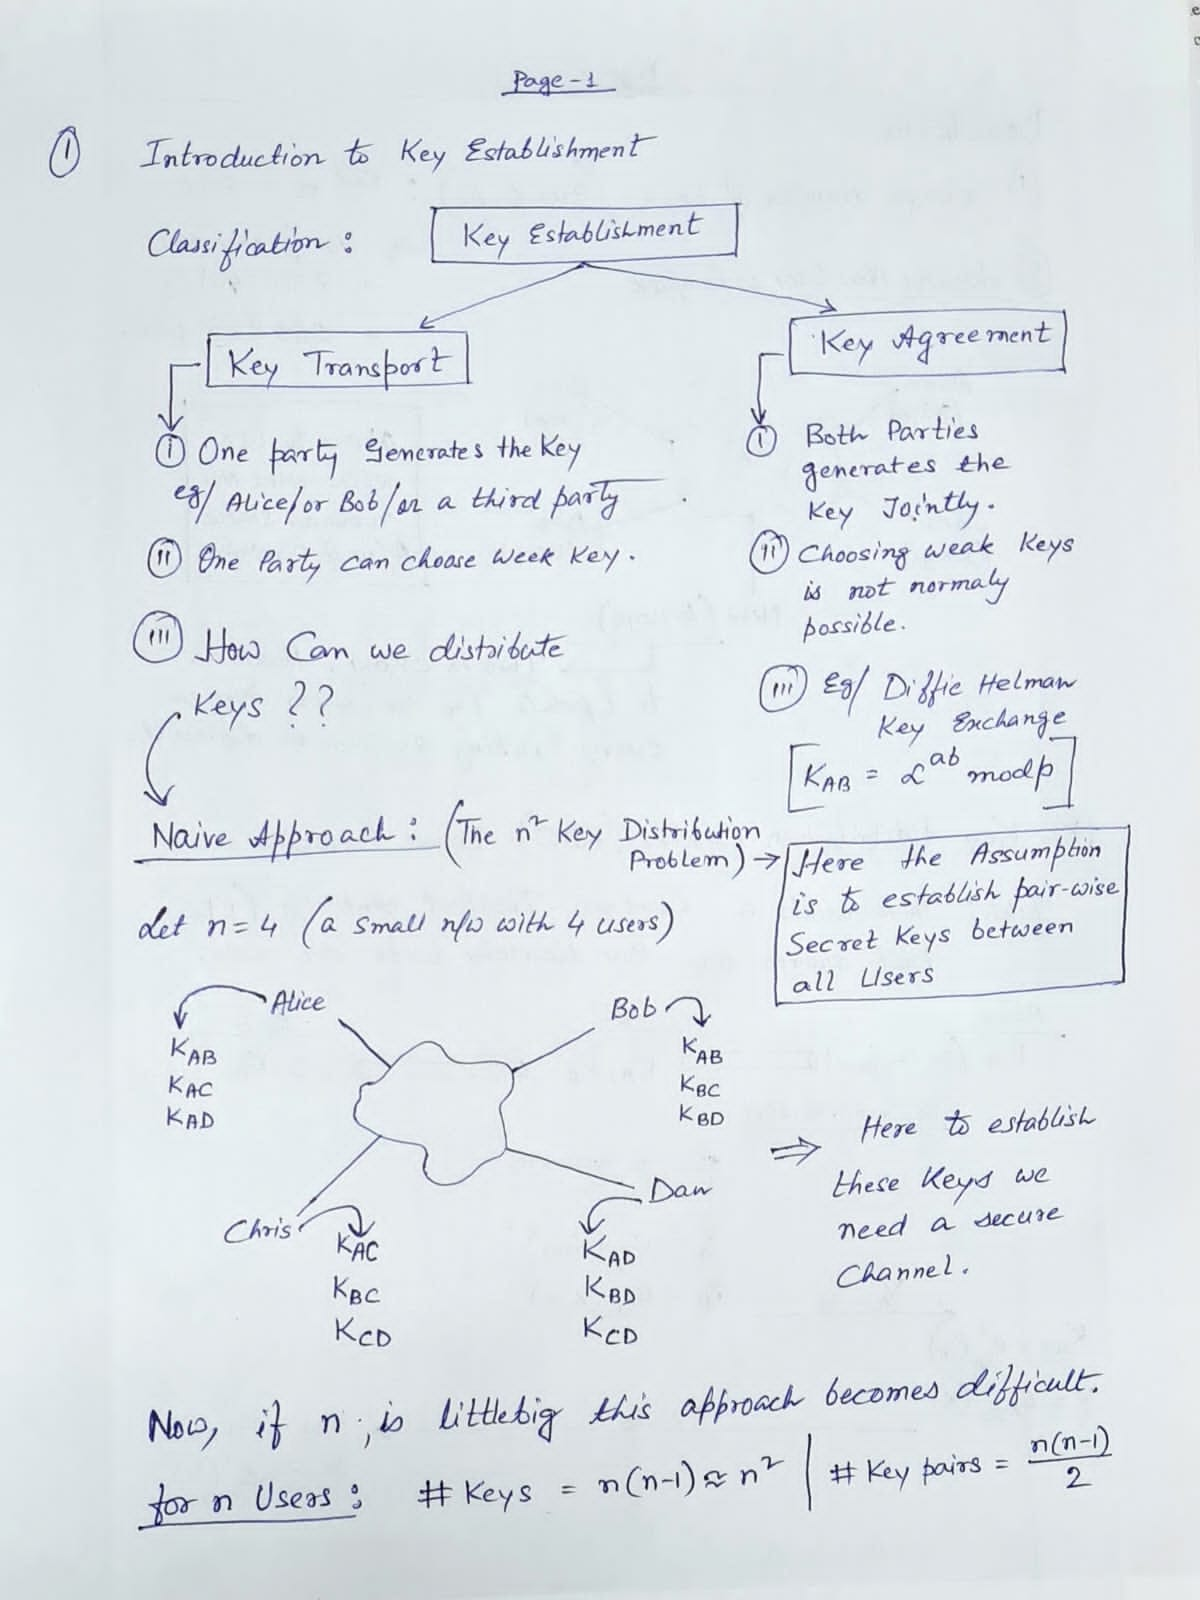 Page-1
① Introduction to Key Establishment
Classification :
Key Establishment
Key Transport
Key Agreement
ⓘ One party generates the Key
eg/ Alice/or Bob/or a third party
(ii) One Party can choose week Key.
(iii) How Can we distribute
Keys ??
ⓘ Both Parties
generates the
Key Jointly.
(ii) Choosing weak Keys
is not normaly
possible.
(iii) Eg/ Diffie Helman
Key Exchange
[K_AB = α^ab mod p]
Naive Approach : (The n² Key Distribution
Problem) →
Here the Assumption
is to establish pair-wise
Secret Keys between
all Users
Let n=4 (a small n/w with 4 users)
Alice
K_AB
K_AC
K_AD
Bob
K_AB
K_BC
K_BD
Chris
K_AC
K_BC
K_CD
Dan
K_AD
K_BD
K_CD
⇒ Here to establish
these Keys we
need a secure
Channel.
Now, if n is littlebig this approach becomes difficult.
for n Users : # Keys = n(n-1) ≈ n² | # Key pairs = n(n-1)/2